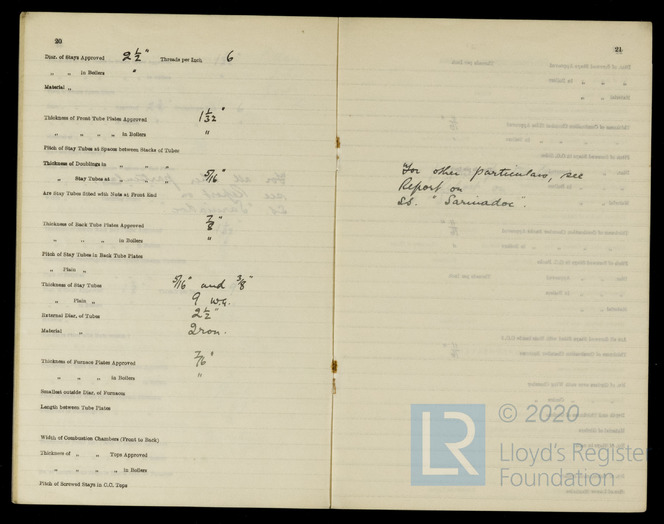 20
Diar. of Stays Approved 2 1/2" Threads per Inch 6
" " in Boilers "
Material "
Thickness of Front Tube Plates Approved 1 1/32"
" " " " in Boilers "
Pitch of Stay Tubes at Spaces between Stacks of Tubes
Thickness of Doublings in " " "
" Stay Tubes at " " 5/16"
Are Stay Tubes fitted with Nuts at Front End
Thickness of Back Tube Plates Approved 7/8"
" " " in Boilers "
Pitch of Stay Tubes in Back Tube Plates
" Plain "
Thickness of Stay Tubes 5/16" and 3/8"
" Plain " 9 W.G.
External Diar. of Tubes 2 1/2"
Material " Iron.
Thickness of Furnace Plates Approved 7/16"
" " " in Boilers "
Smallest outside Diar. of Furnaces
Length between Tube Plates
Width of Combustion Chambers (Front to Back)
Thickness of " " Tops Approved
" " " " in Boilers
Pitch of Screwed Stays in C.C. Tops
21
For other particulars, see
Report on
S.S. "Sarmadoc".
© 2020
LR
Lloyd's Register
Foundation